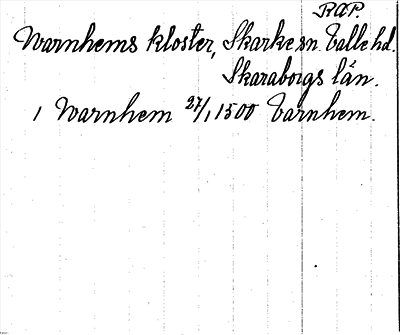 RAP.
Warnhems kloster, Skarke sn. Valle hd.
Skaraborgs län.
1 Warnhem 27/1 1500 Varnhem.